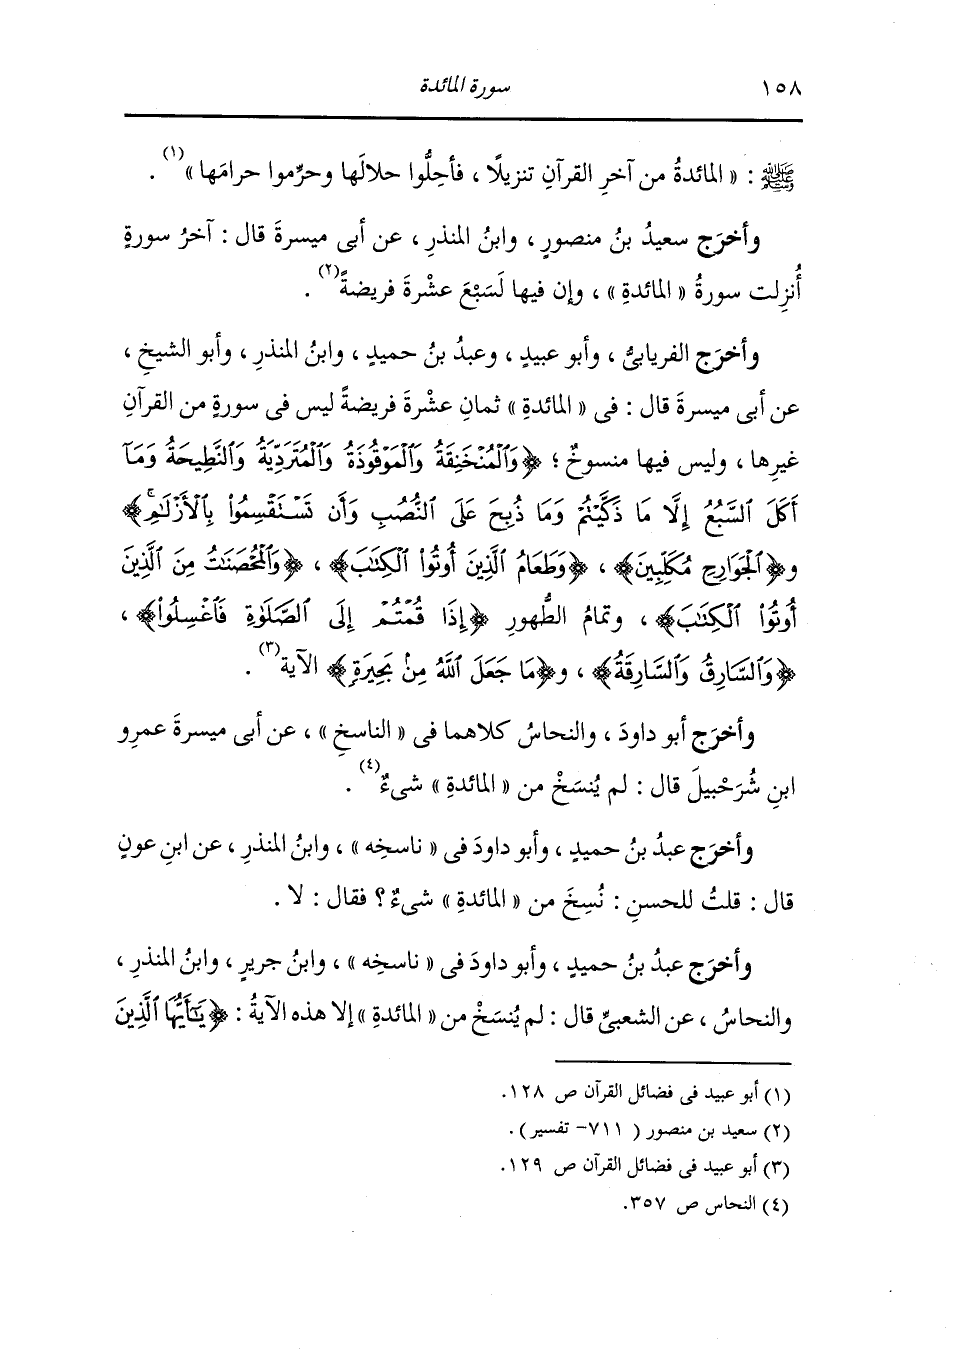 ١٥٨ سورة المائدة
ﷺ : « المائدةُ من آخرِ القرآنِ تنزيلًا ، فأحِلُّوا حلالَها وحرِّموا حرامَها »(١) .
وأخرَج سعيدُ بنُ منصورٍ ، وابنُ المنذرِ ، عن أبى ميسرةَ قال : آخرُ سورةٍ
أُنزِلت سورةُ « المائدةِ » ، وإن فيها لَسَبْعَ عشْرةَ فريضةً(٢) .
وأخرَج الفريابىُّ ، وأبو عبيدٍ ، وعبدُ بنُ حميدٍ ، وابنُ المنذرِ ، وأبو الشيخِ ،
عن أبى ميسرةَ قال : فى « المائدةِ » ثمانِ عشْرةَ فريضةً ليس فى سورةٍ من القرآنِ
غيرِها ، وليس فيها منسوخٌ ؛ ﴿وَٱلْمُنْخَنِقَةُ وَٱلْمَوْقُوذَةُ وَٱلْمُتَرَدِّيَةُ وَٱلنَّطِيحَةُ وَمَآ
أَكَلَ ٱلسَّبُعُ إِلَّا مَا ذَكَّيْتُمْ وَمَا ذُبِحَ عَلَى ٱلنُّصُبِ وَأَن تَسْتَقْسِمُوا۟ بِٱلْأَزْلَٰمِۚ﴾
و﴿ٱلْجَوَارِحِ مُكَلِّبِينَ﴾ ، ﴿وَطَعَامُ ٱلَّذِينَ أُوتُوا۟ ٱلْكِتَٰبَ﴾ ، ﴿وَٱلْمُحْصَنَٰتُ مِنَ ٱلَّذِينَ
أُوتُوا۟ ٱلْكِتَٰبَ﴾ ، وتمامُ الطُّهورِ ﴿إِذَا قُمْتُمْ إِلَى ٱلصَّلَوٰةِ فَٱغْسِلُوا۟﴾ ،
﴿وَٱلسَّارِقُ وَٱلسَّارِقَةُ﴾ ، و﴿مَا جَعَلَ ٱللَّهُ مِنۢ بَحِيرَةٍ﴾ الآيةَ(٣) .
وأخرَج أبو داودَ ، والنحاسُ كلاهما فى « الناسخِ » ، عن أبى ميسرةَ عمرِو
ابنِ شُرَحْبيلَ قال : لم يُنسَخْ من « المائدةِ » شىءٌ(٤) .
وأخرَج عبدُ بنُ حميدٍ ، وأبو داودَ فى « ناسخِه » ، وابنُ المنذرِ ، عن ابنِ عونٍ
قال : قلتُ للحسنِ : نُسِخَ من « المائدةِ » شىءٌ؟ فقال : لا .
وأخرَج عبدُ بنُ حميدٍ ، وأبو داودَ فى « ناسخِه » ، وابنُ جريرٍ ، وابنُ المنذرِ ،
والنحاسُ ، عن الشعبىِّ قال : لم يُنسَخْ من « المائدةِ » إلا هذه الآيةُ : ﴿يَٰٓأَيُّهَا ٱلَّذِينَ
(١) أبو عبيد فى فضائل القرآن ص ١٢٨.
(٢) سعيد بن منصور ( ٧١١- تفسير) .
(٣) أبو عبيد فى فضائل القرآن ص ١٢٩.
(٤) النحاس ص ٣٥٧.